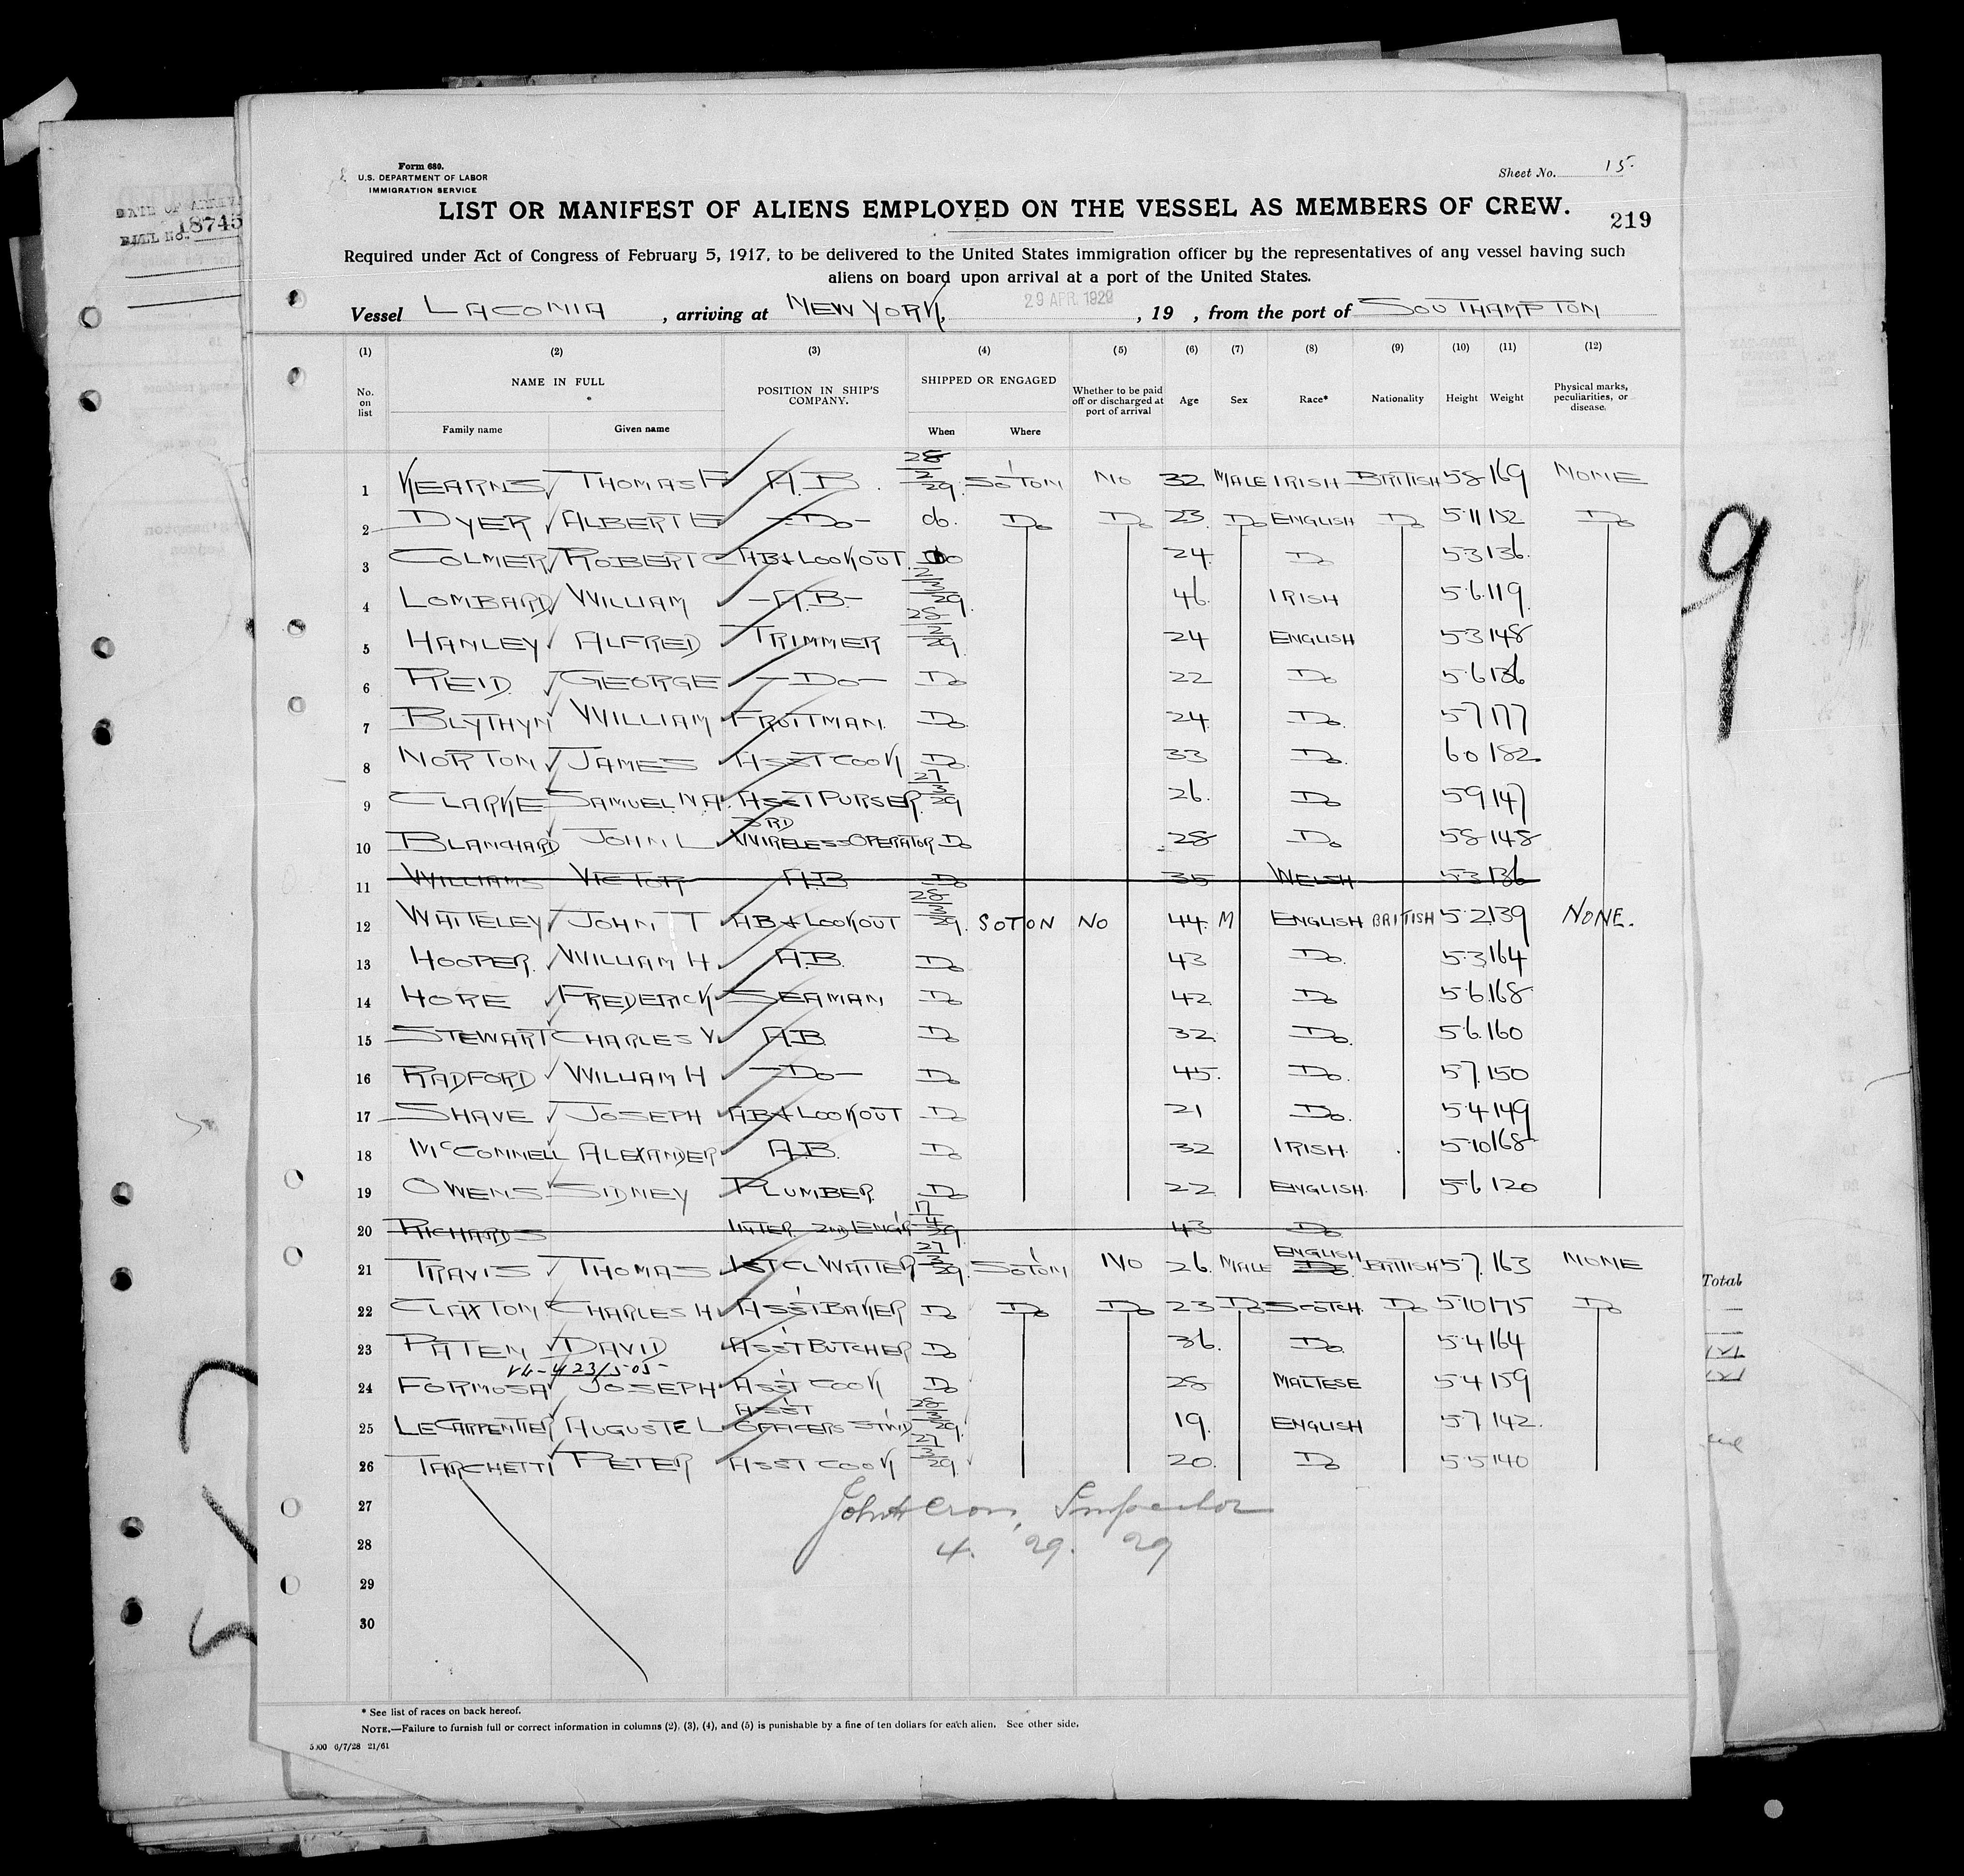 DATE OF ARRIV
BILL No. 18745
Form 680.
U.S. DEPARTMENT OF LABOR
IMMIGRATION SERVICE
Sheet No. 15.
LIST OR MANIFEST OF ALIENS EMPLOYED ON THE VESSEL AS MEMBERS OF CREW.
219
Required under Act of Congress of February 5, 1917, to be delivered to the United States immigration officer by the representatives of any vessel having such
aliens on board upon arrival at a port of the United States.
Vessel LACONIA, arriving at NEW YORK, 29 APR 1929, 19 , from the port of SOUTHAMPTON
(1) (2) (3) (4) (5) (6) (7) (8) (9) (10) (11) (12)
No. on list NAME IN FULL POSITION IN SHIP'S COMPANY. SHIPPED OR ENGAGED Whether to be paid off or discharged at port of arrival Age Sex Race* Nationality Height Weight Physical marks, peculiarities, or disease.
Family name Given name When Where
1 KEARNS THOMAS F A.B. 28/3/29. SO'TON NO 32 MALE IRISH BRITISH 5·8 169 NONE
2 DYER ALBERT E -DO- do. DO DO 23. DO ENGLISH DO 5·11 152 DO
3 COLMER ROBERT C AB & LOOKOUT. DO 24. D 5·3 136.
4 LOMBARD WILLIAM -A.B.- 29. 46. IRISH 5·6. 119.
5 HANLEY ALFRED TRIMMER 28/3/29. 24 ENGLISH 5·3 148
6 REID. GEORGE -DO- DO 22 DO 5·6 136
7 BLYTHYN WILLIAM FRUITMAN. DO. 24. DO. 5·7 177
8 NORTON JAMES ASST COOK DO. 33 DO. 6·0 182
9 CLARKE SAMUEL N.A. ASST PURSER. 27/3/29 26. DO 5·9 147
10 BLANCHARD JOHN L 3RD WIRELESS OPERATOR DO 28 DO 5·8 148
11 WILLIAMS VICTOR A.B DO 35 WELSH 5·3 136
12 WHITELEY JOHN T AB & LOOKOUT 28/3/29. SOTON NO 44. M ENGLISH BRITISH 5·2 139 NONE.
13 HOOPER. WILLIAM H. A.B. DO 43 DO. 5·3 164
14 HORE FREDERICK SEAMAN DO 42 DO 5·6. 168
15 STEWART CHARLES V. A.B. DO 32. DO. 5·6. 160
16 RADFORD WILLIAM H -DO- DO 45. DO. 5·7. 150
17 SHAVE JOSEPH AB & LOOKOUT DO 21 DO. 5·4 149
18 McCONNELL ALEXANDER A.B. DO 32 IRISH. 5·10 168
19 OWENS SIDNEY PLUMBER. DO 22 ENGLISH. 5·6 120
20 RICHARDS INTER 2ND ENG'R 17/4/29. 43 DO
21 TRAVIS THOMAS 1ST CL WAITER 27/3/29. SO'TON NO 26. MALE ENGLISH DO. BRITISH 5·7. 163 NONE
22 CLAXTON CHARLES H ASS'T BAKER DO DO DO 23 DO SCOTCH. DO 5·10 175 DO
23 PATEN DAVID ASS'T BUTCHER DO 36. DO. 5·4 164
24 FORMOSA JOSEPH ASS'T COOK DO 28 MALTESE 5·4 159
25 LECARPENTIER AUGUSTE L ASS'T OFFICERS ST'WD 28/3/29. 19. ENGLISH 5·7 142.
26 TARCHETTI PETER ASST COOK 27/3/29. 20. DO 5·5 140
27 John A Cron, Inspector
28 4. 29. 29
29
30
* See list of races on back hereof.
NOTE.—Failure to furnish full or correct information in columns (2), (3), (4), and (5) is punishable by a fine of ten dollars for each alien. See other side.
6/7/28 21/61
9
Total